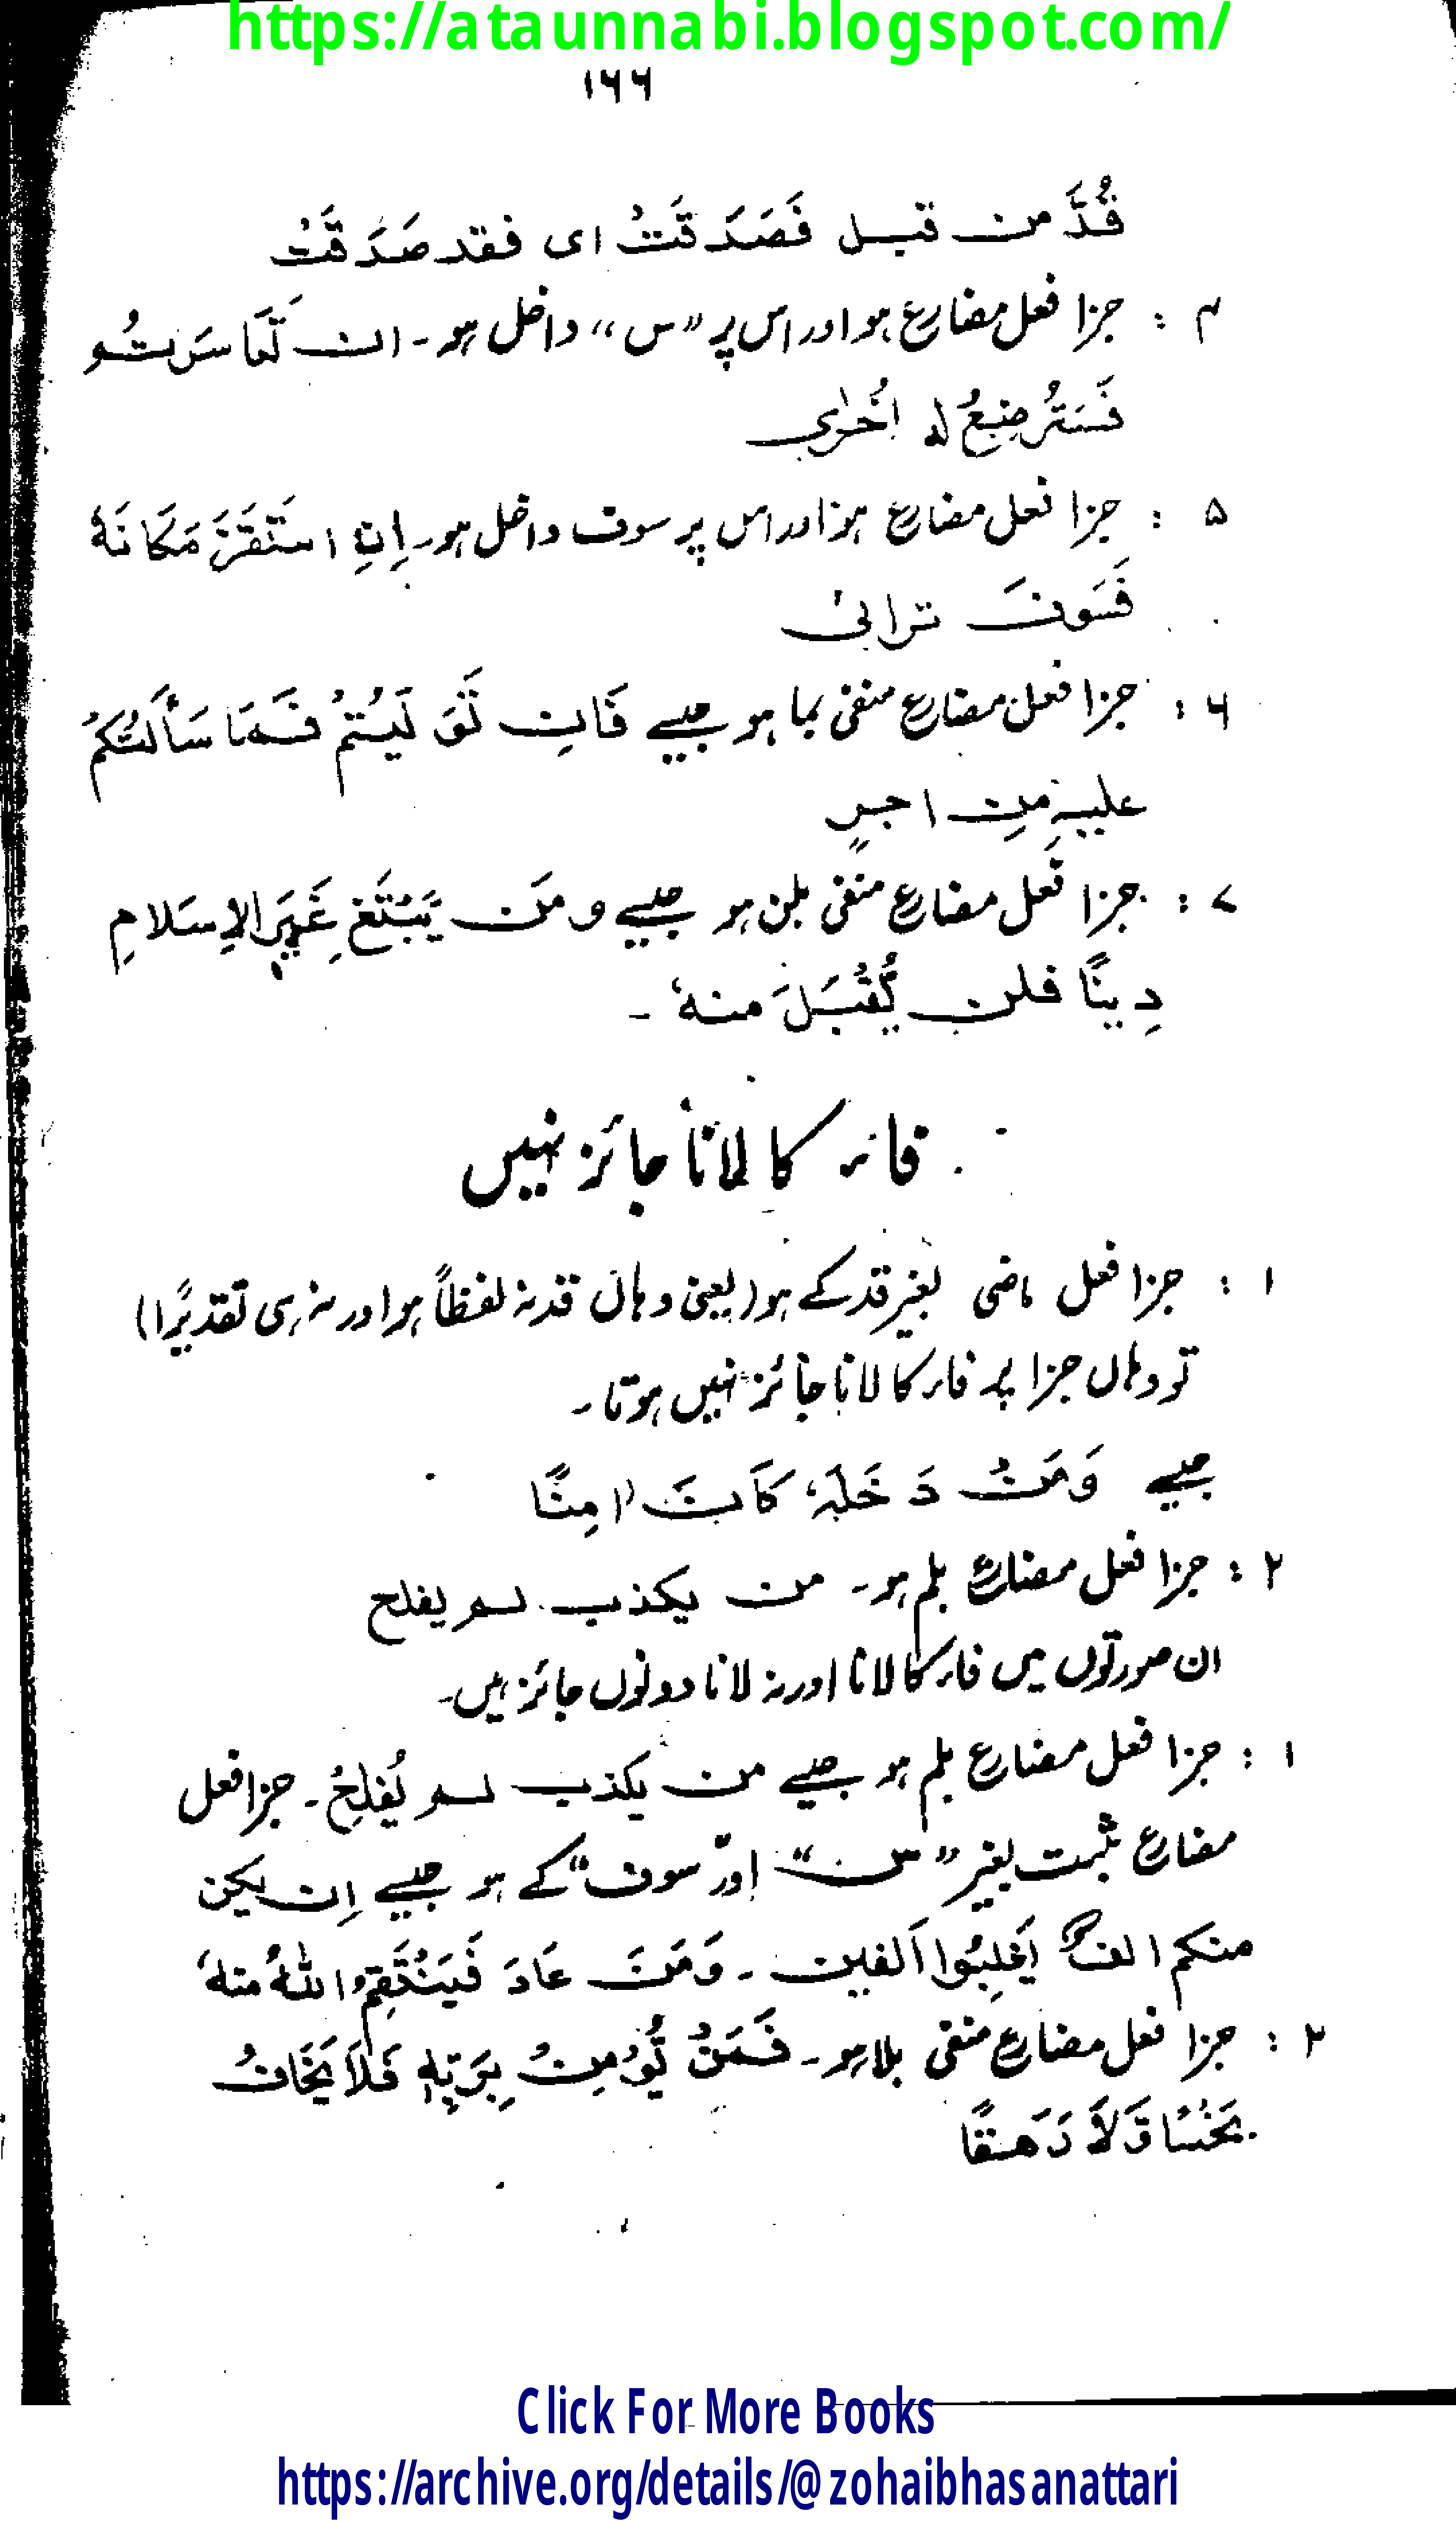 https://ataunnabi.blogspot.com/
۱۶۶
قُدَّ من قبل فَصَدَقَتْ ای فقد صَدَقَتْ
۴ : جزا فعل مضارع ہو اور اس پر “س” داخل ہو۔ ان تَعَاسَرْتُمْ
فَسَتُرْضِعُ لہ اُخْرٰی
۵ : جزا فعل مضارع ہو اور اس پر سوف داخل ہو۔ اِنِ اسْتَقَرَّ مَكَانَهٗ
فَسَوفَ ترانی
۶ : جزا فعل مضارع منفی بما ہو جیسے فَاِن تَوَلَّيْتُمْ فَمَا سَأَلْتُكُمْ
علیہِ مِن اجرٍ
۷ : جزا فعل مضارع منفی بلن ہو جیسے و مَن يَبْتَغِ غَيْرَ الاِسْلامِ
دِينًا فلن يُّقْبَلَ منهٗ ۔
فاء کا لانا جائز نہیں
۱ : جزا فعل ماضی بغیر قد کے ہو (یعنی وہاں قد نہ لفظاً ہو اور نہ ہی تقدیرًا)
تو وہاں جزا پر فاء کا لانا جائز نہیں ہوتا ۔
جیسے وَمَنْ دَخَلَهٗ كَانَ اٰمِنًا
۲ : جزا فعل مضارع بلم ہو۔ من یکذب لم یفلح
ان صورتوں میں فاء کا لانا اور نہ لانا دونوں جائز ہیں۔
۱ : جزا فعل مضارع بلم ہو جیسے من یکذب لم یُفلِحْ۔ جزا فعل
مضارع مثبت بغیر “س” اور “سوف” کے ہو جیسے اِن یکن
منکم الفٌ یَغلِبُوا اَلفین ۔ وَمَنْ عَادَ فَيَنْتَقِمُ اللهُ منهٗ
۲ : جزا فعل مضارع منفی بلا ہو۔ فَمَنْ يُّؤْمِنْ بِرَبِّهٖ فَلَا يَخَافُ
بَخْسًا وَّلَا رَهَقًا
Click For More Books
https://archive.org/details/@zohaibhasanattari